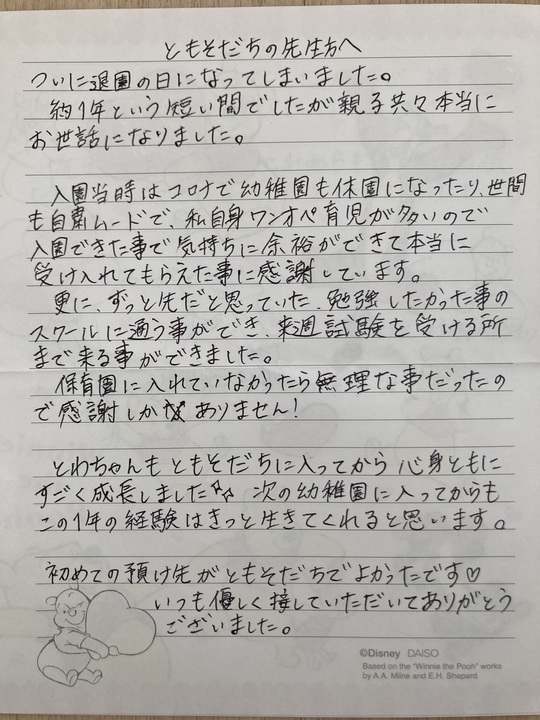 ともそだちの先生方へ
ついに退園の日になってしまいました。
約1年という短い間でしたが親子共々本当に
お世話になりました。
入園当時はコロナで幼稚園も休園になったり、世間
も自粛ムードで、私自身ワンオペ育児が多いので
入園できた事で気持ちに余裕ができて本当に
受け入れてもらえた事に感謝しています。
更に、ずっと先だと思っていた、勉強したかった事の
スクールに通う事ができ、来週試験を受ける所
まで来る事ができました。
保育園に入れていなかったら無理な事だったの
で感謝しかありません!
とわちゃんもともそだちに入ってから心身ともに
すごく成長しました☆☆ 次の幼稚園に入ってからも
この1年の経験はきっと生きてくれると思います。
初めての預け先がともそだちでよかったです♡
いつも優しく接していただいてありがとう
ございました。
©Disney DAISO
Based on the "Winnie the Pooh" works
by A.A. Milne and E.H. Shepard.